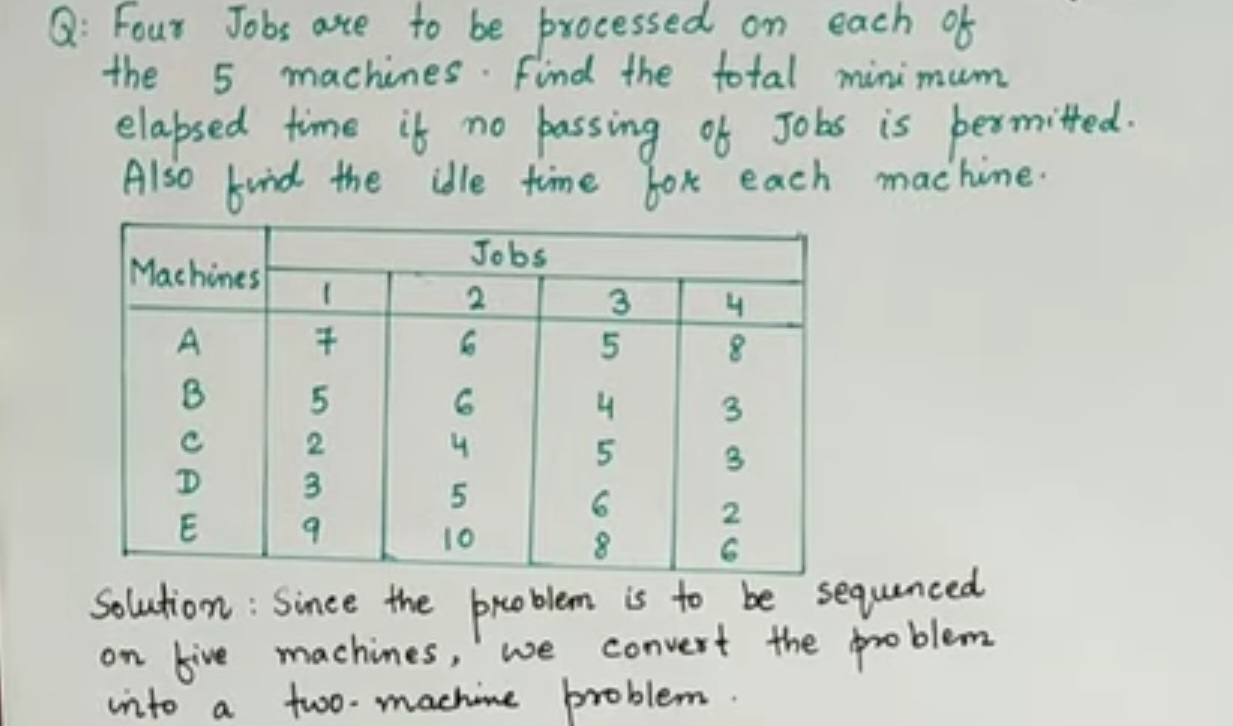 Q: Four Jobs are to be processed on each of
the 5 machines. Find the total minimum
elapsed time if no passing of Jobs is permitted.
Also find the idle time for each machine.
Machines Jobs
1 2 3 4
A 7 6 5 8
B 5 6 4 3
C 2 4 5 3
D 3 5 6 2
E 9 10 8 6
Solution: Since the problem is to be sequenced
on five machines, we convert the problem
into a two-machine problem.